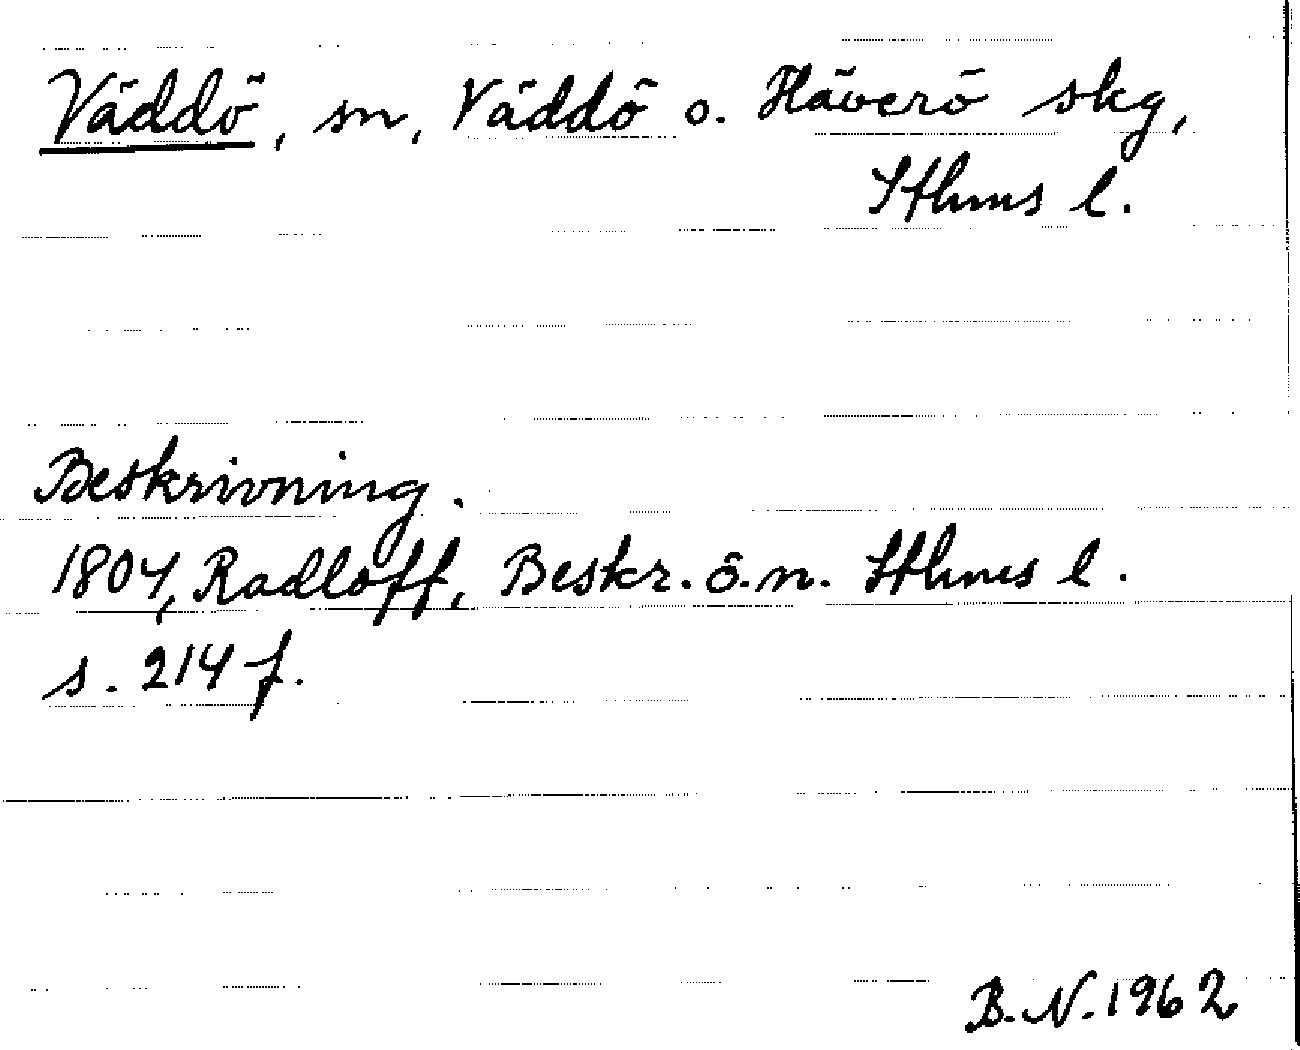 Väddö, sn, Väddö o. Häverö skg,
Sthms l.
Beskrivning.
1804, Radloff, Beskr. ö. n. Sthms l.
s. 214 f.
B. N. 1962